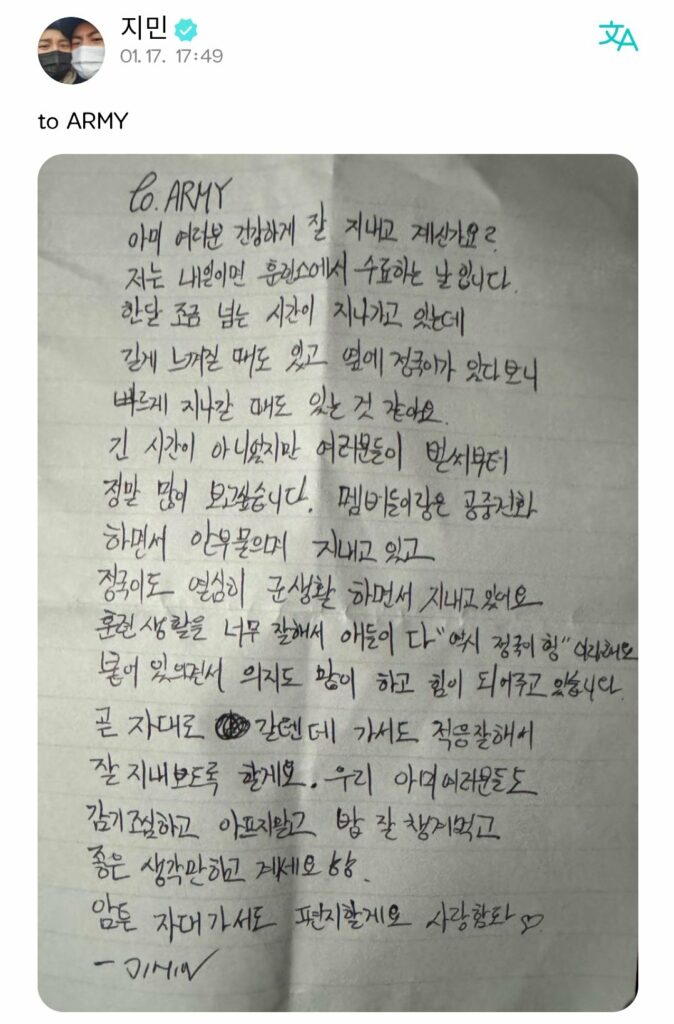 지민
01. 17. 17:49
to ARMY
to. ARMY
아미 여러분 건강하게 잘 지내고 계신가요?
저는 내일이면 훈련소에서 수료하는 날입니다.
한달 조금 넘는 시간이 지나가고 있는데
길게 느껴질 때도 있고 옆에 정국이가 있다보니
빠르게 지나갈 때도 있는 것 같아요.
긴 시간이 아니었지만 여러분들이 벌써부터
정말 많이 보고싶습니다. 멤버들이랑은 공중전화
하면서 안부물으며 지내고 있고
정국이도 열심히 군생활 하면서 지내고있어요
훈련 생활을 너무 잘해서 애들이 다 "역시 정국이 형" 이라해요
붙어 있으면서 의지도 많이 하고 힘이 되어주고 있습니다.
곧 자대로 갈텐데 가서도 적응잘해서
잘 지내보도록 할게요. 우리 아미여러분들도
감기조심하고 아프지말고 밥 잘 챙겨먹고
좋은 생각만하고 계세요
암튼 자대가서도 편지할게요 사랑함돠♡
- JIMIN